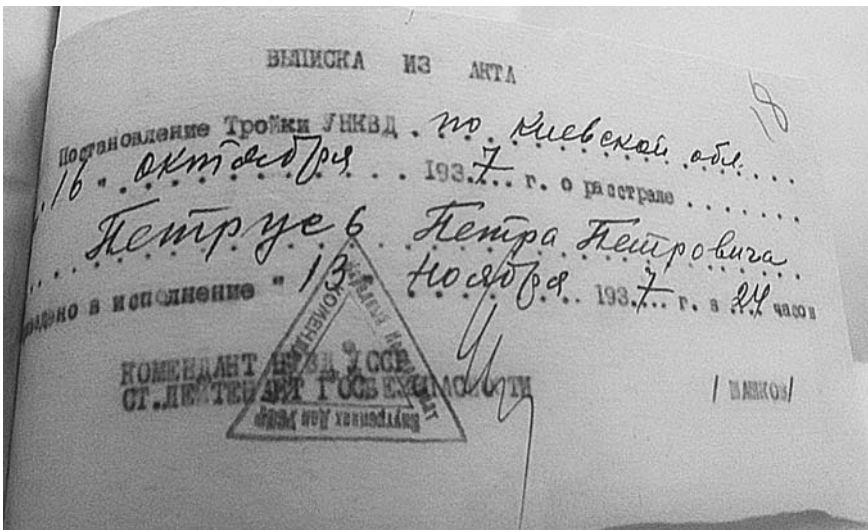 ВЫПИСКА ИЗ АКТА
18
Постановление Тройки УНКВД . по Киевской обл.
"16" октября 1937 г. о расстреле
Петрусь Петра Петровича
приведено в исполнение "13" Ноября 1937 г. в 24 часов
КОМЕНДАНТ НКВД УССР
СТ.ЛЕЙТЕНАНТ ГОСБЕЗОПАСНОСТИ /ШАШКОВ/
Народный Комиссариат
Внутренних Дел УССР